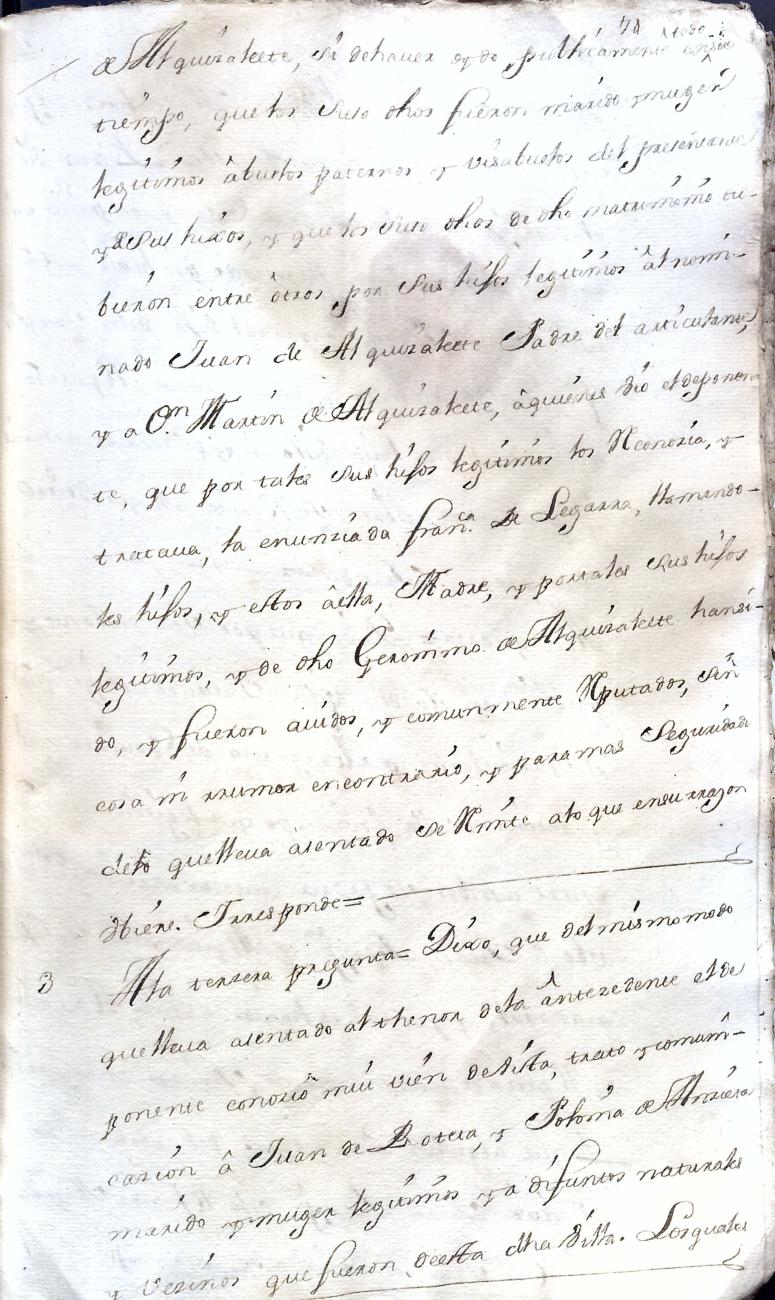 de Alquizalete, si de haver oydo publicamente
tiempo, que los suso dhos fueron marido y muger
legitimos abuelos paternos y visabuelos del presentante
y de sus hixos, y que los suso dhos de dho matrimonio tu-
bieron entre otros por sus hijos legitimos al nomi-
nado Juan de Alquizalete Padre del articulante,
y a Dn. Martin de Alquizalete, aquienes vio el deponen
te, que por tales sus hijos legitimos los Reconozia, y
tratava, la enunziada franca. de Legarra, llamando-
les hijos, y estos aella, Madre, y portales sus hijos
legitimos, y de dho Geronimo de Alquizalete hansi-
do, y fueron auidos, y comunmente Rputados, sin
cosa ni rrumor encontrario, y para mas Seguridad
delo quelleva asentado se Rmite alo que ensu rrazon
Ubiere. Irresponde=
3 Ala terzera pregunta= Dixo, que del mismo modo
quelleva asentado al thenor dela antezedente el de
ponente conozio mui vien de vista, trato y comuni-
cazion a Juan de Loteta, y Polonia de Anzieta
marido y muger legitimos ya difuntos naturales
y vezinos que fueron deesta dha Villa. Los quales